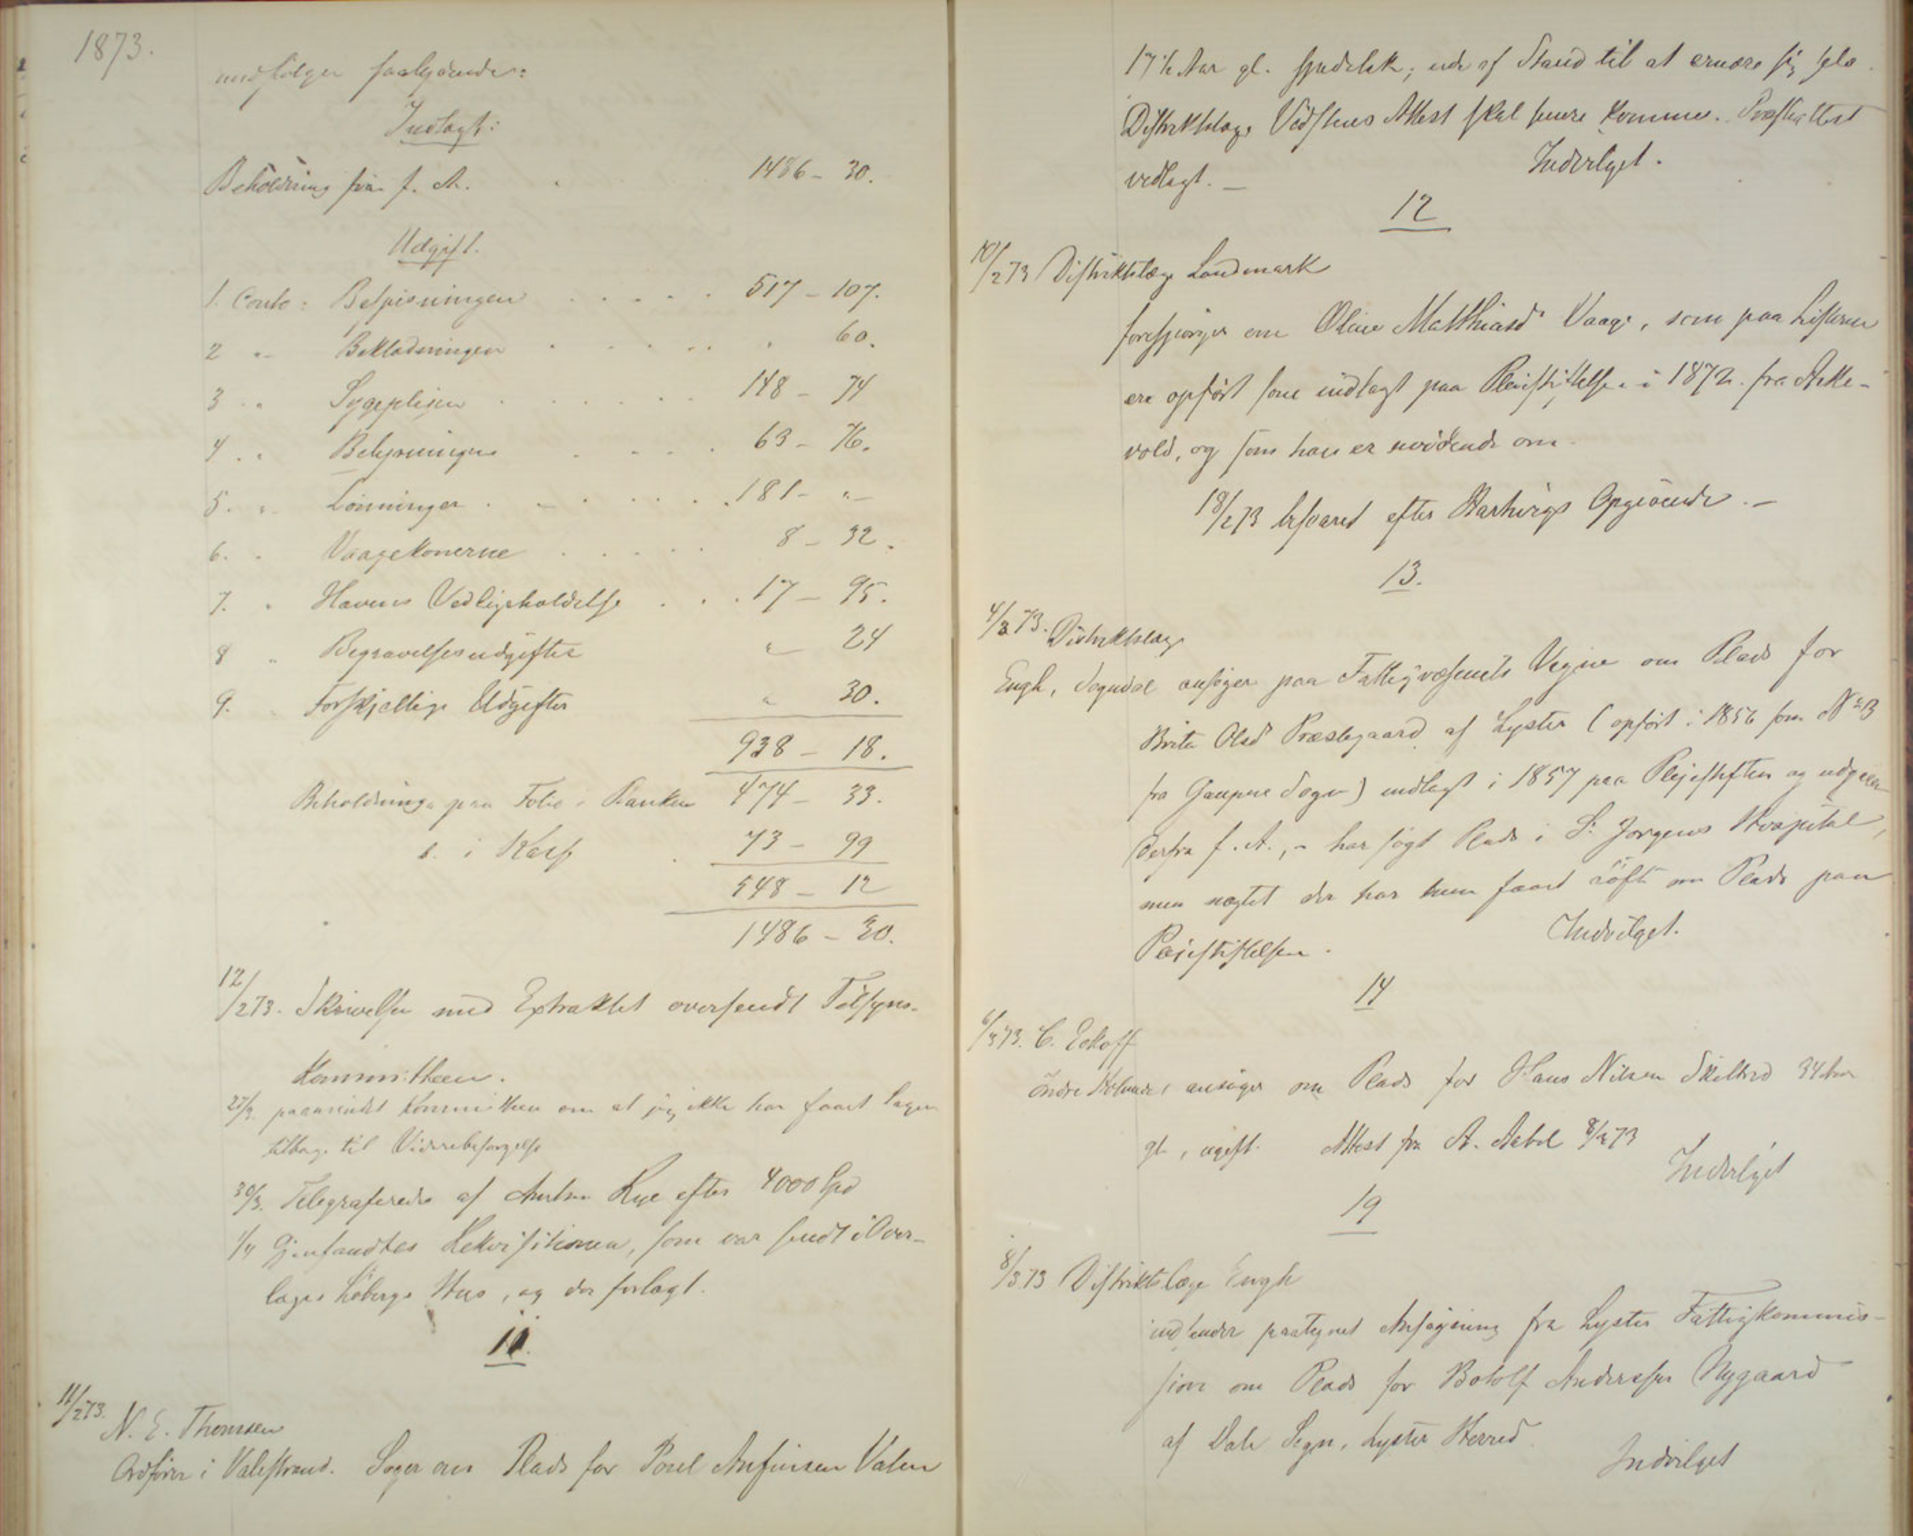 1873.
medfølger saalydende:
Indtægt:
Beholdning fra f. A. 1486 – 30.
Udgift.
1. Conto: Bespisningen 517 – 107.
2 " Beklædningen " 60.
3 " Sygeplejen 148 – 74
4 " Belysningen 63 – 76.
5. " Lønninger 181 – "
6. " Vaagekonerne 8 – 32.
7. " Havens Vedligeholdelse 17 – 95.
8 " Begravelsesudgifter " 24
9. " Forskjellige Udgifter " 30.
938 – 18.
Beholdning paa Folio i Banken 474 – 33.
i Kasse 73 – 99
548 – 12
1486 – 30.
12/2 73. Skrivelsen med Extraktet oversendt Tilsyns-
Kommitteen.
27/3 paamindet Kommitteen om at jeg ikke har faaet Sagen
tilbage til Viderebesørgelse
30/3. Telegraferede af Rye efter 4000 Spd
1/4 Gjenfandtes Rekvisitionen, som var sendt i Over-
læge Løbergs Hus, og der forlagt.
11.
11/2 73. N. E. Thomsen
Ordfører i Valestrand. Søger om Plads for Poul Anfinsen Valen
17½ Aar gl. spedalsk, ude af Stand til at ernære sig selv.
Distriktslæge Attest skal senere komme. Præsteattest
vedlagt. – Indvilget.
12
10/2 73 Distriktslæge Landmark
forespørger om Oline Matthiasd. Vaage, som paa Listerne
er opført som indlagt paa Pleiestiftelsen i 1872 fra Aske-
vold, og som han er uvidende om.
18/2 73 besvaret efter Hartvigs Opgivende. –
13.
4/3 73. Distriktslæge
Engh, Sogndal ansøger paa Fattigvæsenets Vegne om Plads for
Brita Olsd Præstegaard af Lyster (opført i 1856 som No 23
fra Gaupne Sogn) indlagt i 1857 paa Plejestiften og udgaaet
derfra f. A., – har søgt Plads i St. Jørgens Hospital,
men nægtet der har hun faaet Løfte om Plads paa
Pleiestiftelsen. Indvilget.
14
6/3 73. C. Eckoff
Søndre Holmedal ansøger om Plads for Hans Nilsen 34 Aar
gl., ugift. Attest fra A. 8/3 73
Indvilget
19
8/3 73 Distriktslæge Engh
indsender paategnet Ansøgning fra Lyster Fattigkommis-
sion om Plads for Botolf Anderssen Nygaard
af Dale Sogn, Lyster Herred.
Indvilget